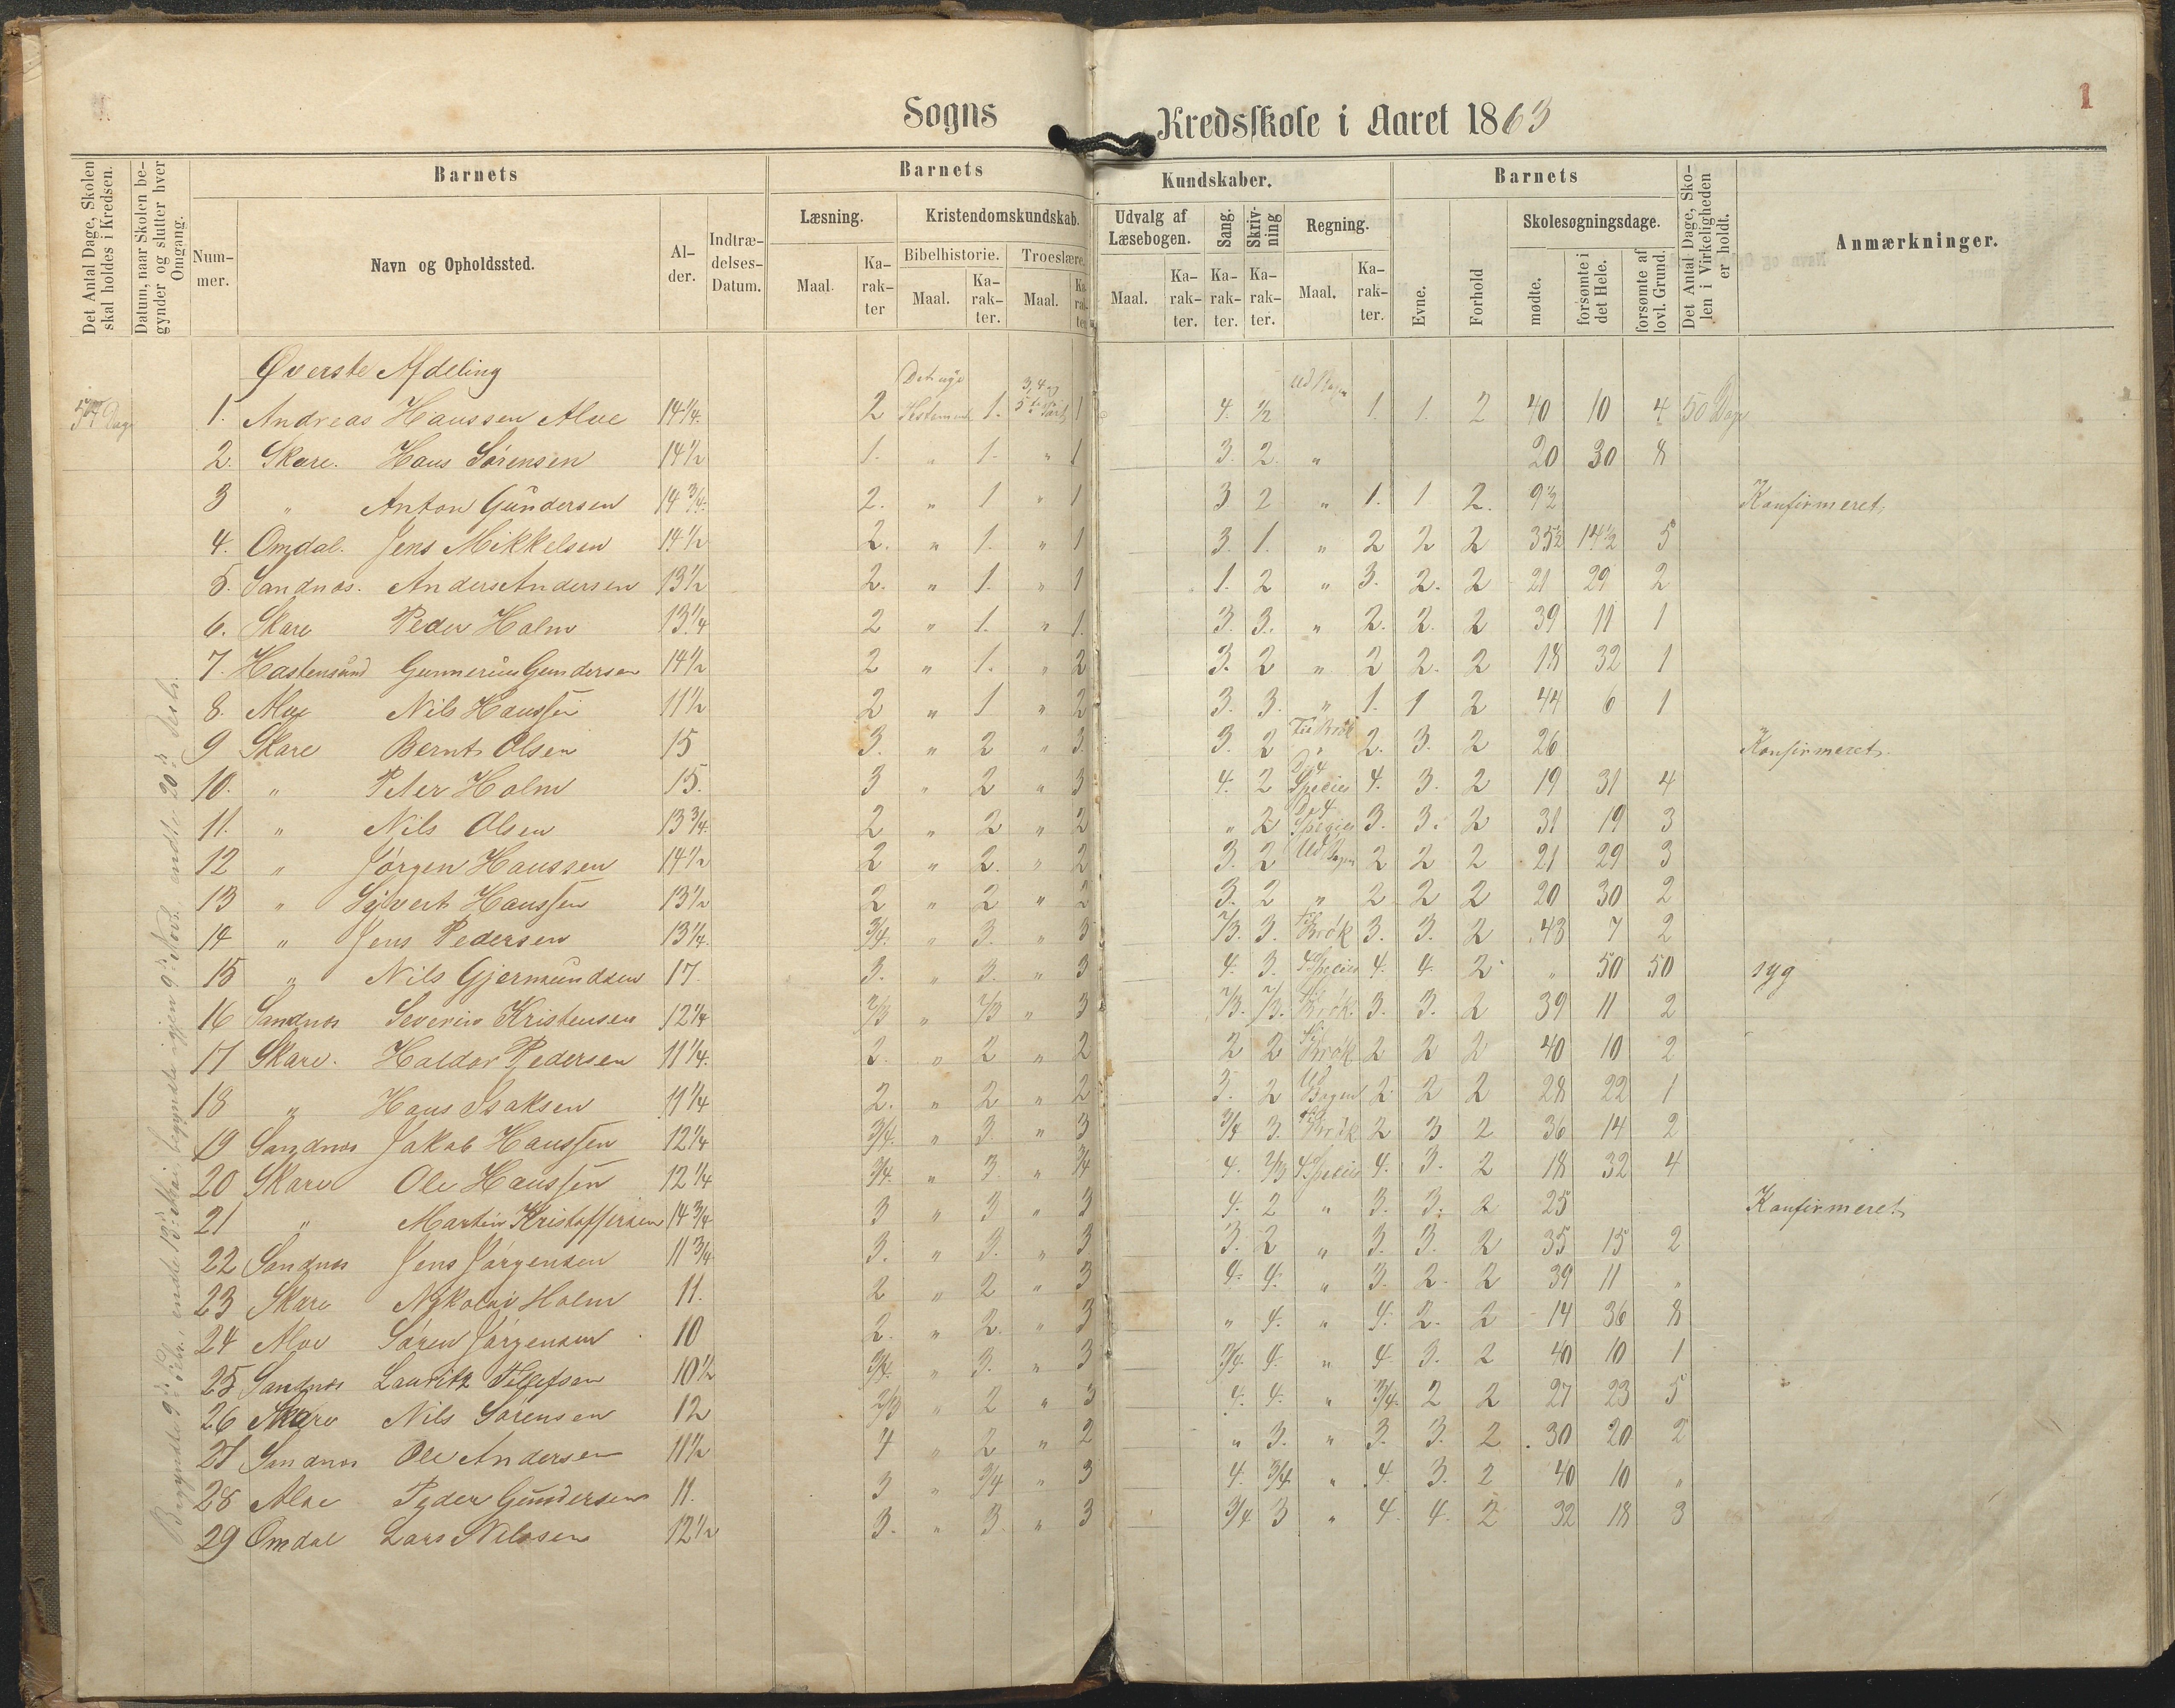 Sogns Kredsskole i Aaret 1863
1
Det Antal Dage, Skolen skal holdes i Kredsen.
Datum, naar Skolen begynder og slutter hver Omgang.
Barnets
Nummer.
Navn og Opholdssted.
Alder.
Indtrædelses-Datum.
Barnets Kundskaber.
Læsning.
Maal. Karakter
Kristendomskundskab.
Bibelhistorie.
Maal. Karakter.
Troeslære.
Maal. Karakter
Udvalg af Læsebogen.
Maal. Karakter.
Sang. Karakter.
Skrivning Karakter.
Regning.
Maal. Karakter.
Barnets
Evne.
Forhold
Skolesøgningsdage.
mødte.
forsømte i det Hele.
forsømte af lovl. Grund.
Det Antal Dage, Skolen i Virkeligheden er holdt.
Anmærkninger.
Øverste Afdeling
54 Dage 1. Andreas Hanssen Aloe 14¼. 2 Det nye Testament 1. 3, 4 og 5te Part 1 4. ½ Ud Bogen 1. 1. 2 40 10 4 50 Dage
2. Skare. Hans Sørensen 14½ 1. " 1. " 1 3. 2. " 20 30 8
3 " Anton Gundersen 14¾. 2. " 1 " 1 3 2 " 1. 1 2. 9½ Konfirmeret.
4. Omdal. Jens Mikkelsen 14½ 2. " 1. " 1 3. 1. " 2 2 2 35½ 14½ 5
5. Sandnæs. Anders Andersen 13½ 2. " 1. " 1 1. 2 " 3. 2. 2 21 29 2
6. Skare Peder Holm 13¼ 2 " 1. " 1. 3. 3. " 2. 2. 2 39 11 1
7. Hastensund Gunnerius Gundersen 14½ 2 " 1. " 2 3. 2 " 2 2. 2 18 32 1
8. Aloe Nils Hanssen 11½ 2 " 1 " 2 3. 3. " 1. 1 2 44 6 1
9 Skare Bernt Olsen 15 3. " 2 " 3. 3. 2 Til Brøk 2. 3. 2 26 Konfirmeret.
10. " Peter Holm 15. 3 " 2 " 3 4. 2 De 4 Species 4. 3. 2 19 31 4
11. " Nils Olsen 13¾. 2 " 2 " 2 " 2 De 4 Species 3. 3. 2 31 19 3
12 " Jørgen Hanssen 14½ 2 " 2. " 2 3. 2 Ud Bogen 2 2 2 21 29 3
13 " Syvert Hanssen 13½ 2 " 2 " 2 3. 2 " 2 2 2 20 30 2
14 " Jens Pedersen 13¼. 3/4. " 3. " 3 2/3. 3. Til Brøk 3. 3. 2 43 7 2
15 " Nils Gjermundsen 17. 3. " 3. " 3 4. 3. 4 Species 4. 4. 2 " 50 50 syg
16 Sandnæs Severin Kristensen 12¼ 2/3 " 2/3 " 3 2/3. 2/3. Til Brøk. 3. 3. 2 39 11 2
17 Skare. Haldor Pedersen 11¼. 2. " 2 " 2 2 2 Til Brøk 2 2 2 40 10 2
18 " Hans Isaksen 11¼ 2. " 2 " 2 3. 2 Ud Bogen 2 2 2 28 22 1
19 Sandnæs Jakob Hanssen 12¼ 3/4. " 3. " 3 3/4 3. Til Brøk 2 3 2 36 14 2
20 Skare Ole Hanssen 12¼ 3/4. " 3. " 3/4 4. 2/3 4 Species 4. 3. 2 18 32 4
21 " Martin Kristoffersen 14¾ 3 " 3 " 3 4. 2 " 3. 3. 2 25 Konfirmeret.
22 Sandnæs Jens Jørgensen 11¾ 3. " 3. " 3 3. 2 " 3. 3. 2 35 15 2
23 Skare Nykolai Holm 11. 2 " 2 " 3 4. 4. " 3. 2. 2 39 11 "
24 Aloe Søren Jørgensen 10 2. " 2. " 3 " 4. " 4. 2. 2 14 36 8
25 Sandnæs Lauritz Tellefsen 10½ 3/4. " 3. " 3 3/4 4. " 4 3. 2 40 10 1
26 Skare Nils Sørensen 12 2/3 " 2 " 3 4. 4. " 3/4. 2 2 27 23 5
27 Sandnæs Ole Andersen 11½ 4 " 2 " 2 " 3. " 3. 3. 2 30 20 2
28 Aloe Peder Gundersen 11. 3 " 3/4 " 3 4. 3/4. " 4. 3. 2 40 10 "
29 Omdal Lars Nilssen 12½ 3. " 3. " 3 3/4 3 " 4. 4. 2 32 18 3